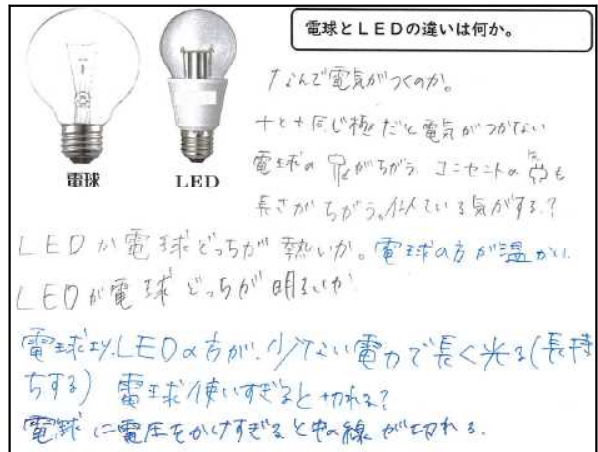 電球とLEDの違いは何か。
電球
LED
なんで電気がつくのか。
+と+同じ極だと電気がつかない
電球の がちがう。コンセントの も
長さがちがう。似ている気がする?
LEDか電球どっちが熱いか。電球の方が温かい。
LEDか電球どっちが明るいか
電球より、LEDの方が、少ない電力で長く光る(長持
ちする) 電球使いすぎると切れる?
電球に電圧をかけすぎると中の線が切れる。